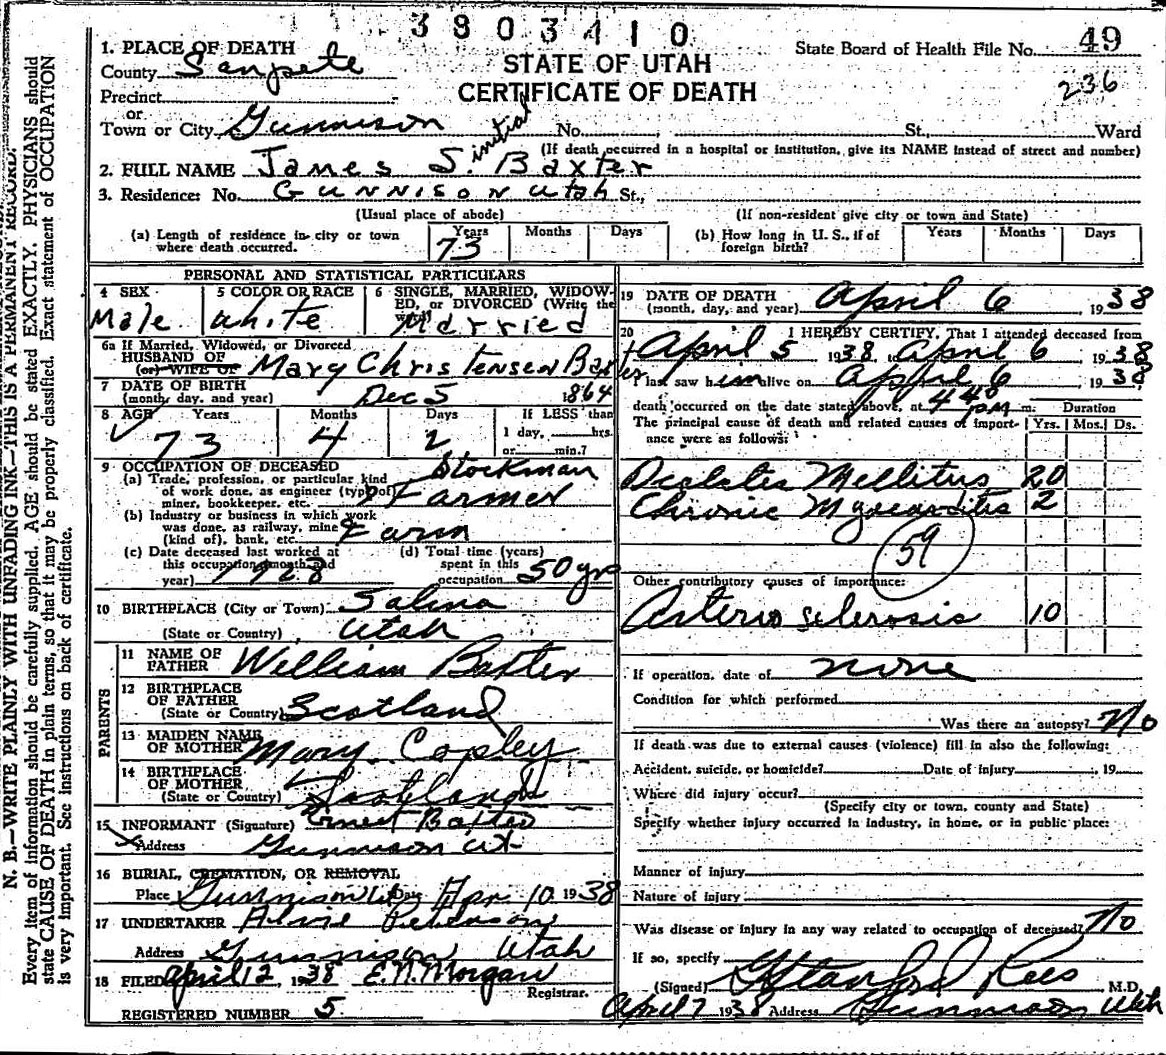 3803410
1. PLACE OF DEATH
County Sanpete
STATE OF UTAH
CERTIFICATE OF DEATH
State Board of Health File No. 49
236
Precinct
or
Town or City Gunnison No. St., Ward
(If death occurred in a hospital or institution, give its NAME instead of street and number)
initial
2. FULL NAME James S. Baxter
3. Residence: No. GUNNISON Utah St.,
(Usual place of abode) (If non-resident give city or town and State)
(a) Length of residence in city or town where death occurred. Years 73 Months Days
(b) How long in U. S., if of foreign birth? Years Months Days
PERSONAL AND STATISTICAL PARTICULARS
4 SEX Male
5 COLOR OR RACE White
6 SINGLE, MARRIED, WIDOWED, or DIVORCED (Write the word) Married
6a If Married, Widowed, or Divorced
HUSBAND OF
(or) WIFE OF Mary Christensen Baxter
7 DATE OF BIRTH
(month, day, and year) Dec 5 1864
8 AGE Years Months Days If LESS than
73 4 2 1 day, hrs.
or min.?
9 OCCUPATION OF DECEASED Stockman
(a) Trade, profession, or particular kind
of work done, as engineer (type of
miner, bookkeeper, etc. Farmer
(b) Industry or business in which work
was done, as railway, mine
(kind of), bank, etc. Farm
(c) Date deceased last worked at
this occupation (month and
year) 1928
(d) Total time (years)
spent in this
occupation 50 yrs
10 BIRTHPLACE (City or Town) Salina
(State or Country) Utah
PARENTS
11 NAME OF
FATHER William Baxter
12 BIRTHPLACE
OF FATHER
(State or Country) Scotland
13 MAIDEN NAME
OF MOTHER Mary Copley
14 BIRTHPLACE
OF MOTHER
(State or Country) Scotland
15 INFORMANT (Signature) Ernest Baxter
Address Gunnison Ut
16 BURIAL, CREMATION, OR REMOVAL
Place Gunnison Date Apr. 10 1938
17 UNDERTAKER Alvie Peterson
Address Gunnison Utah
18 FILED April 12, 1938 E. N. Morgan
Registrar.
REGISTERED NUMBER 5
19 DATE OF DEATH
(month, day, and year) April 6 1938
20 I HEREBY CERTIFY, That I attended deceased from
April 5 1938 to April 6 1938
I last saw him alive on April 6 1938
death occurred on the date stated above, at 4 40 PM m. Duration
The principal cause of death and related causes of importance were as follows: Yrs. Mos. Ds.
Diabetes Mellitus 20
Chronic Myocarditis 2
59
Other contributory causes of importance:
Arterio sclerosis 10
If operation, date of none
Condition for which performed
Was there an autopsy? No
If death was due to external causes (violence) fill in also the following:
Accident, suicide, or homicide? Date of injury 19
Where did injury occur?
(Specify city or town, county and State)
Specify whether injury occurred in industry, in home, or in public place:
Manner of injury
Nature of injury
Was disease or injury in any way related to occupation of deceased? No
If so, specify
(Signed) G Stanford Rees M.D.
April 7 1938 Address Gunnison Utah
N. B.—WRITE PLAINLY WITH UNFADING INK—THIS IS A PERMANENT RECORD.
Every item of information should be carefully supplied. AGE should be stated EXACTLY. PHYSICIANS should
state CAUSE OF DEATH in plain terms, so that it may be properly classified. Exact statement of OCCUPATION
is very important. See instructions on back of certificate.